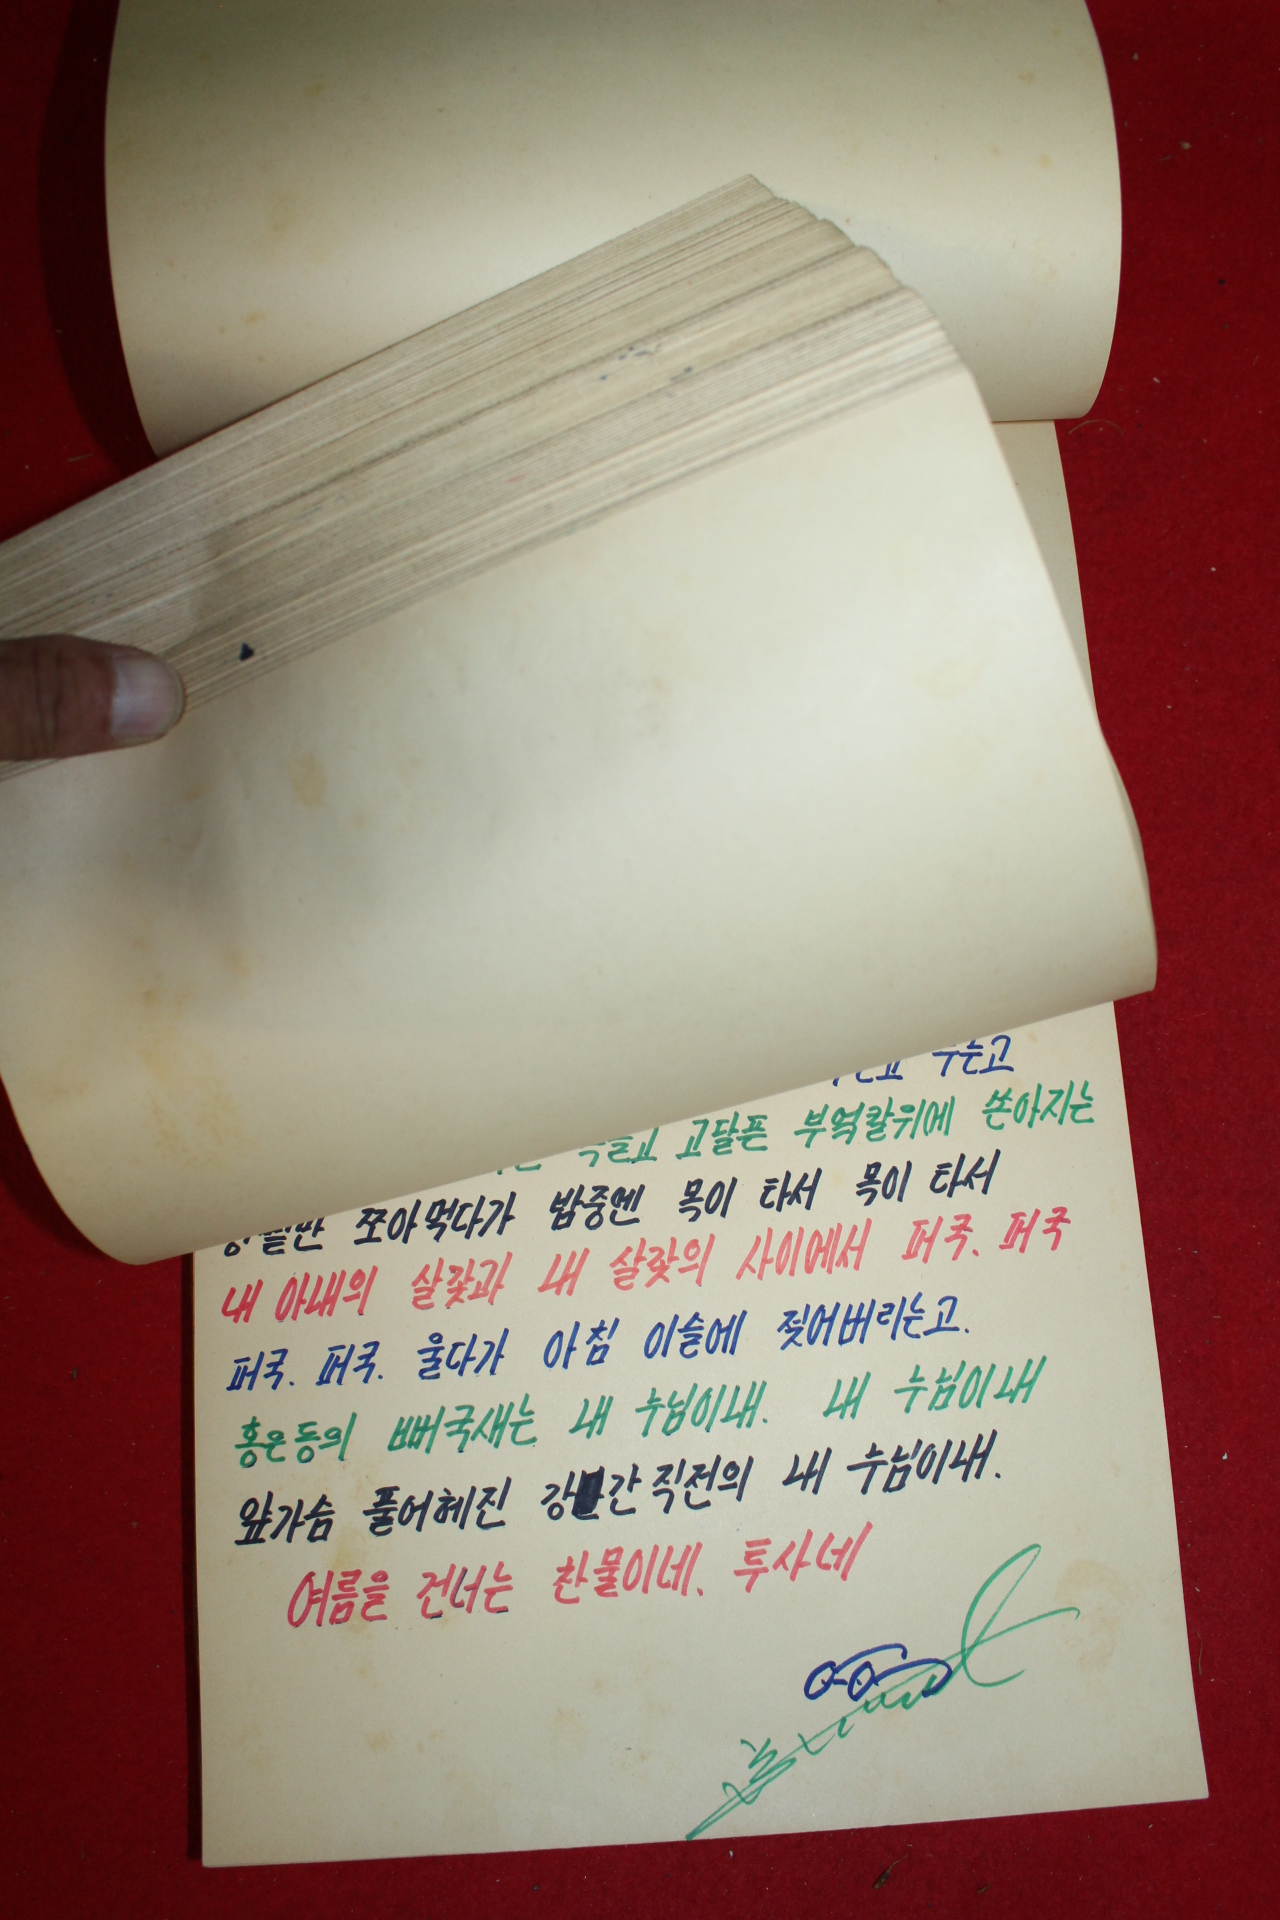 우는고
고달픈 부엌칼위에 쏟아지는
쪼아먹다가 밤중엔 목이 타서 목이 타서
내 아내의 살갗과 내 살갗의 사이에서 퍼국. 퍼국
퍼국. 퍼국. 울다가 아침 이슬에 젖어버리는고.
홍은동의 뻐국새는 내 누님이내. 내 누님이내
앞가슴 풀어헤진 강간직전의 내 누님이내.
여름을 건너는 찬물이네. 투사네